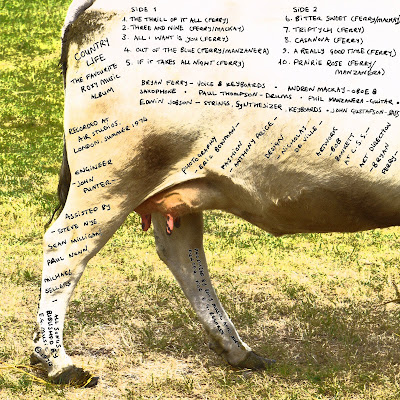 SIDE 1
1. THE THRILL OF IT ALL (FERRY)
2. THREE AND NINE (FERRY/MACKAY)
3. ALL I WANT IS YOU (FERRY)
4. OUT OF THE BLUE (FERRY/MANZANERA)
5. IF IT TAKES ALL NIGHT (FERRY)
SIDE 2
6. BITTER SWEET (FERRY/MACKAY)
7. TRIPTYCH (FERRY)
8. CASANOVA (FERRY)
9. A REALLY GOOD TIME (FERRY)
10. PRAIRIE ROSE (FERRY/
MANZANERA)
COUNTRY
LIFE
THE FAVOURITE
ROXY MUSIC
ALBUM
BRYAN FERRY - VOICE & KEYBOARDS
ANDREW MACKAY - OBOE &
SAXOPHONE • PAUL THOMPSON - DRUMS • PHIL MANZANERA - GUITAR •
EDWIN JOBSON - STRINGS, SYNTHESIZER, KEYBOARDS • JOHN GUSTAFSON - BASS
RECORDED AT
AIR STUDIOS
LONDON. SUMMER
ENGINEER
- JOHN
PUNTER
- ASSISTED BY
- STEVE NYE
SEAN MILLIGAN
PAUL NUNN
MICHAEL
SELLERS
PHOTOGRAPHY
- ERIC BOMAN -
FASHION
- ANTHONY PRICE -
DESIGN
NICHOLAS
DE VILLE
ARTWORK
- BOB
BOWKETT
AT C.S.S. -
ART DIRECTION
- BRYAN
FERRY -
ALL SONGS
PUBLISHED BY